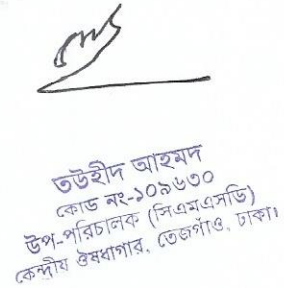 তউহীদ আহমদ
কোড নং-১০৯৬৩০
উপ-পরিচালক (সিএমএসডি)
কেন্দ্রীয় ঔষধাগার, তেজগাঁও, ঢাকা।